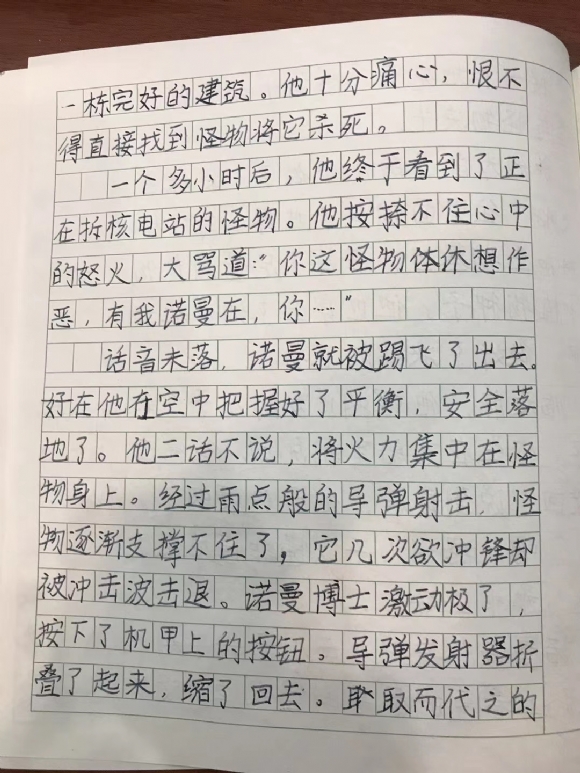 一栋完好的建筑。他十分痛心，恨不
得直接找到怪物将它杀死。
一个多小时后，他终于看到了正
在拆核电站的怪物。他按捺不住心中
的怒火，大骂道：“你这怪物体休想作
恶，有我诺曼在，你……”
话音未落，诺曼就被踢飞了出去。
好在他在空中把握好了平衡，安全落
地了。他二话不说，将火力集中在怪
物身上。经过雨点般的导弹射击，怪
物逐渐支撑不住了，它几次欲冲锋却
被冲击波击退。诺曼博士激动极了，
按下了机甲上的按钮。导弹发射器折
叠了起来，缩了回去。取而代之的